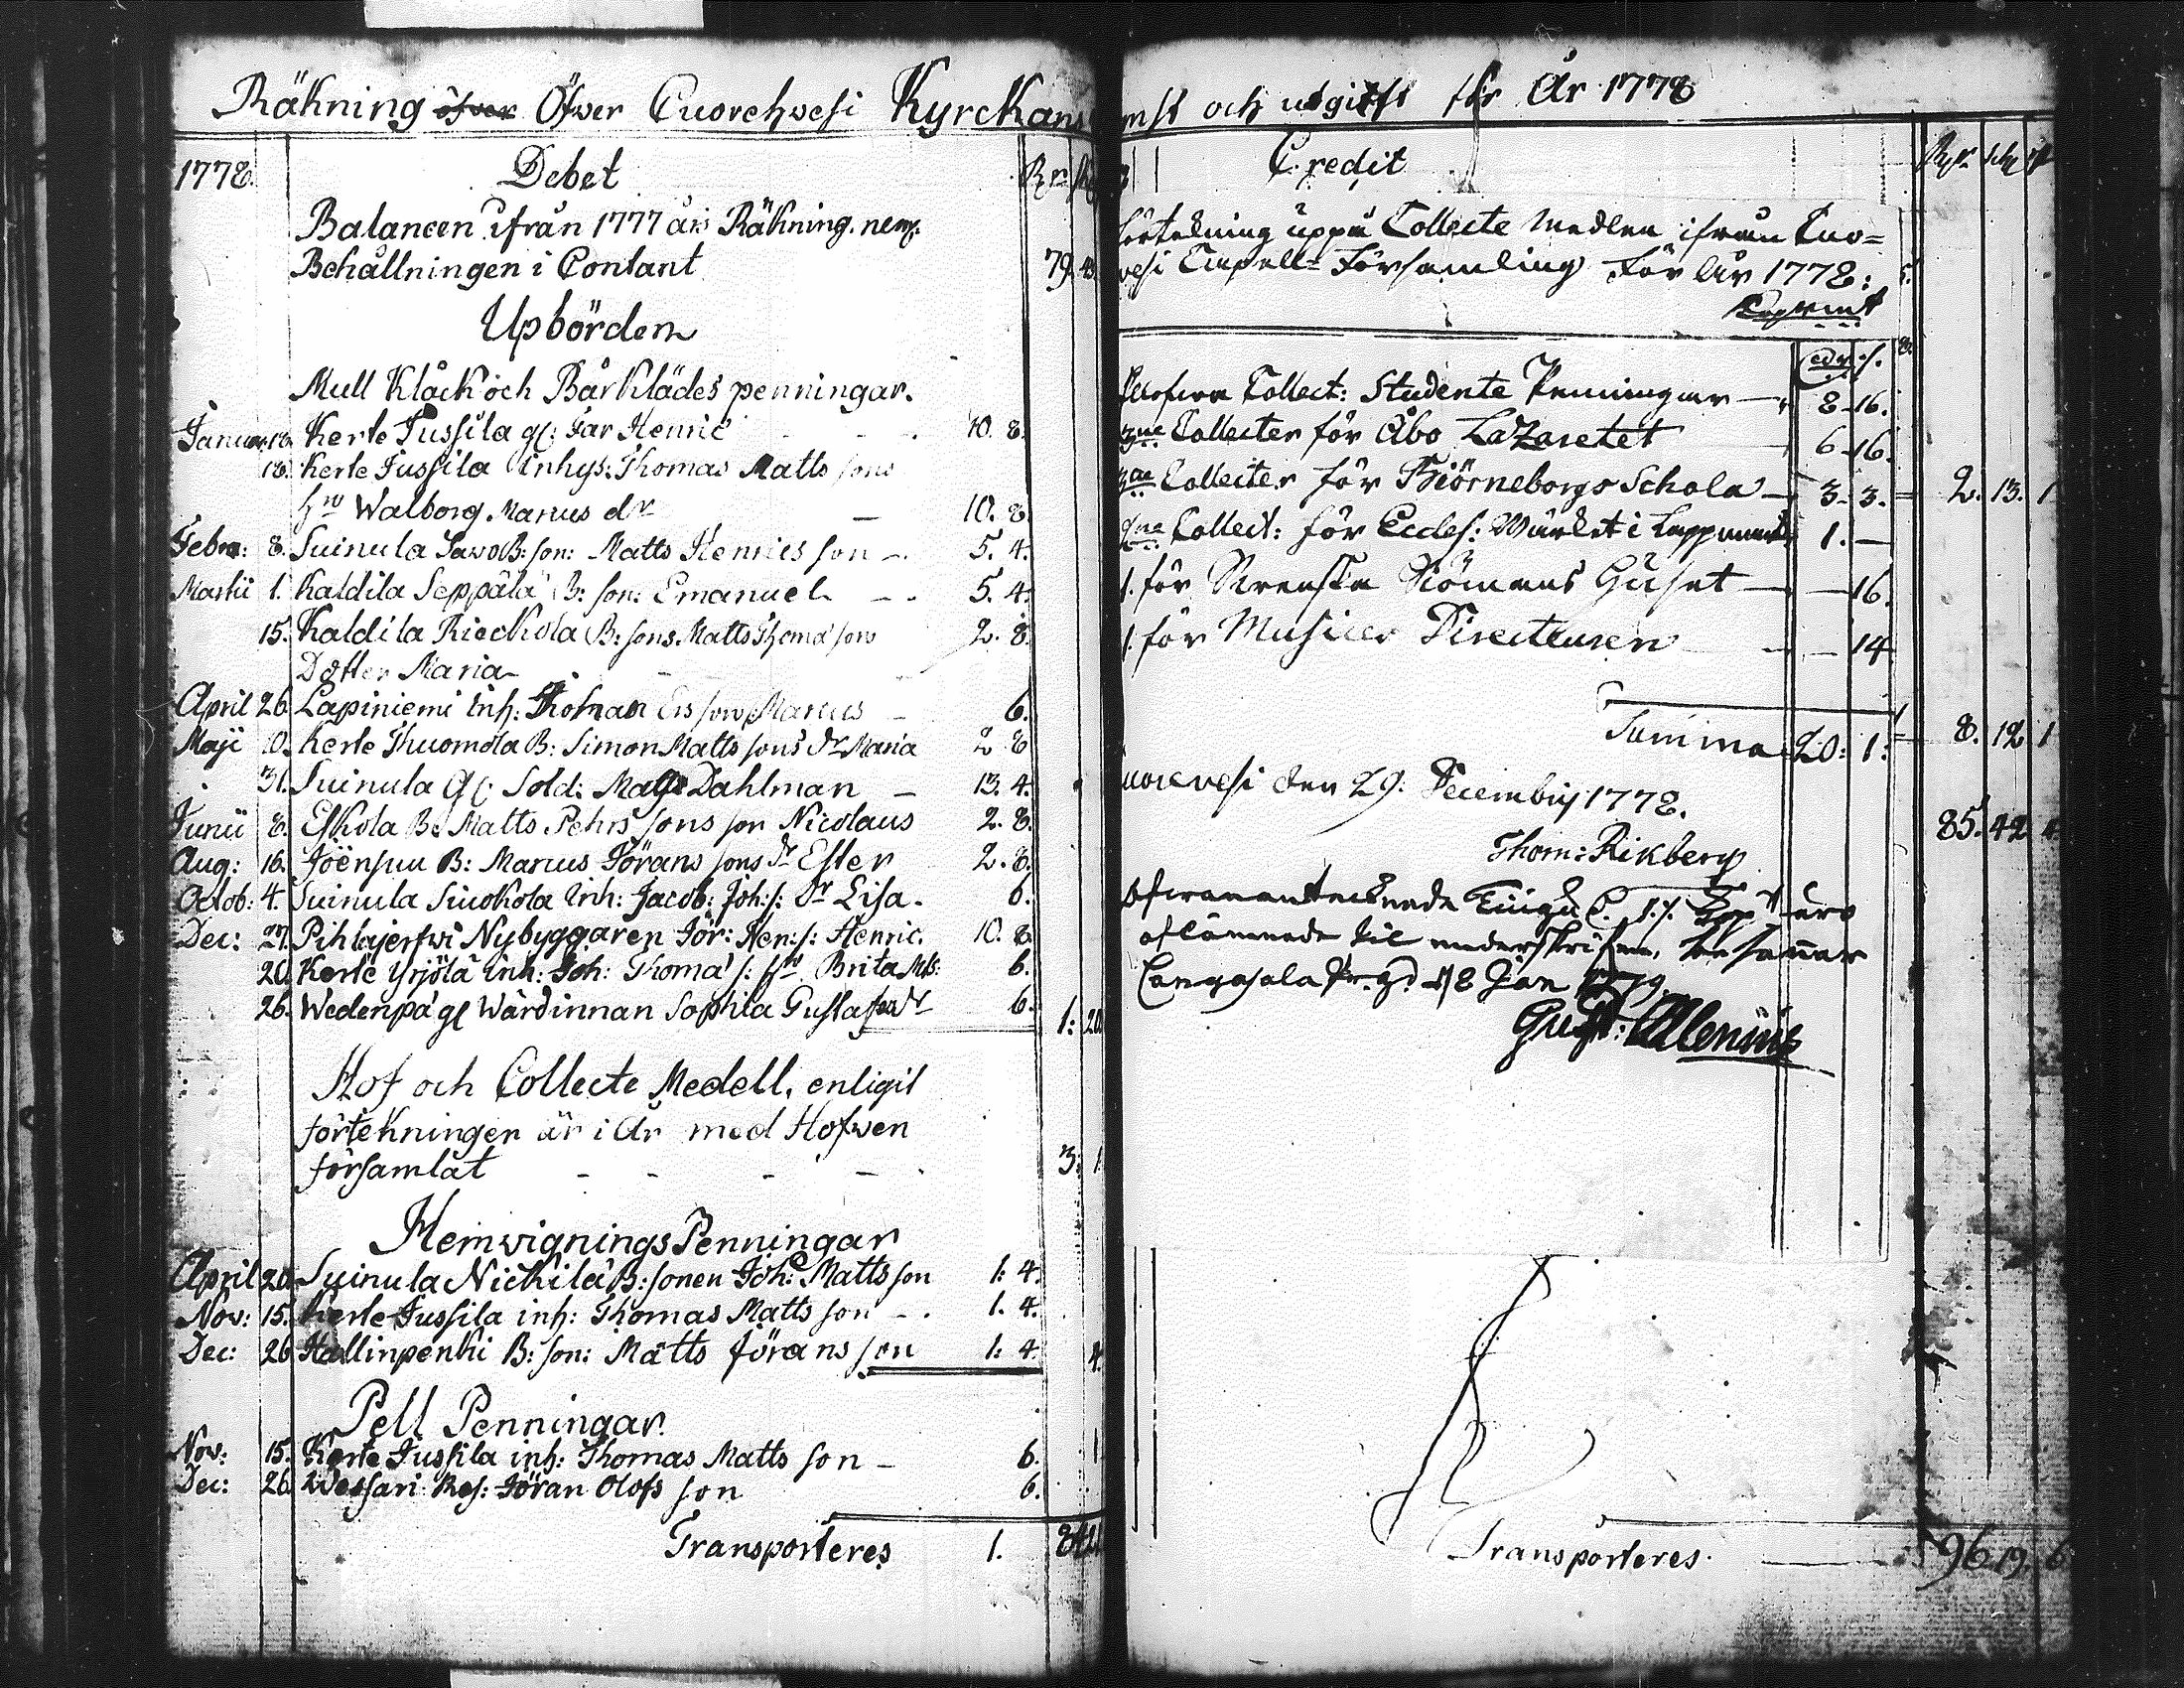 Räkning öfver Öfwer Cuorehwesi Kyrckans
1778. Debet Rr
Balancen ifrån 1777 års Räkning. nem:
Behållningen i Contant 79.
Upbörden
Mull Klåck och Bår Klädes penningar.
Januar: 18. Kerte Jussila gl: Far Henric 10. 8.
18. Kerte Jussila Inhys: Thomas Matts sons
hru Walborg Marcus dr 10. 8.
Febru: 8. Suinula Sawo B: son: Matts Henrics son 5. 4.
Martii 1. Kaldila Seppälä B: son: Emanuel 5. 4.
15. Kaldila Rieckola B: sons Matts Thoma son 2. 8.
Dotter Maria
April 26. Lapiniemi Inh: Thomas Ers son Marcus 6.
Maji 10. Kerte Thuomola B: Simon Matts sons dr Maria 2. 8
31. Suinula gl: Sold: Mags Dahlman 13. 4.
Junii 8. Eskola B: Matts Pehrs sons son Nicolaus 2. 8.
Aug: 16. Joënsuu B: Marcus Jörans sons dr Ester 2. 8.
Octob: 4. Suinula Siuokola Inh: Jacob: Joh: s: dr Lisa. 6.
Dec: 27. Pihlajerfwi Nybyggaren Jör: Hen: s: Henric. 10. 8.
20. Kerte Yrjölä Inh: Joh: Thoma s: hru Brita Mts: 6.
26. Wedenpä gl Wärdinnan Sophia Gustafs dr 6. 1: 20.
Hof och Collecte Medell, enligit
förtekningen är i år med Hofwen
församlat 3: 1
HemwigningsPenningar
April 20. Suinula Nickilä B: sonen Joh: Matts son 1: 4.
Nov: 15. Kerte Jussila inh: Thomas Matts son 1. 4.
Dec: 26 Hallinpenki B: son: Matts Jörans son 1: 4. 4.
Pell Penningar.
Nov: 15. Kerte Jussila inh: Thomas Matts son 6.
Dec: 26. Wessari Res: Jöran Olofs son 6.
Transporteres 1.
mst och utgift för År 1778
Credit Rr sch
förtekning uppå Collecte Medlen ifrån Cuo=
vesi Capell= Församling för År 1778:
Kopp mt
Collect: Studente Penningar 8 - 16.
Collecter för Åbo Lazaretet 6 - 16.
Collecter för Biörneborgs Schola 3 - 3. 2. 13. 1
Collect: för Eccles: Märket i Lappmark 1. —
1. för Svenska Siömans Huset 16.
1. för Musices Directeuren 14
Summa 20: 1: 8. 12 1
uorevesi den 29: Decembris 1778. 85. 42 4
Thom: Rikberg
ofwanantecknade Tiugu D. 1. s. Kopp mt äro
aflämnade til underskrifven, besannar
Cangasala Pr. gd d 8 Jan 1779.
Gust: Alenius
Transporteres. 96. 19. 6